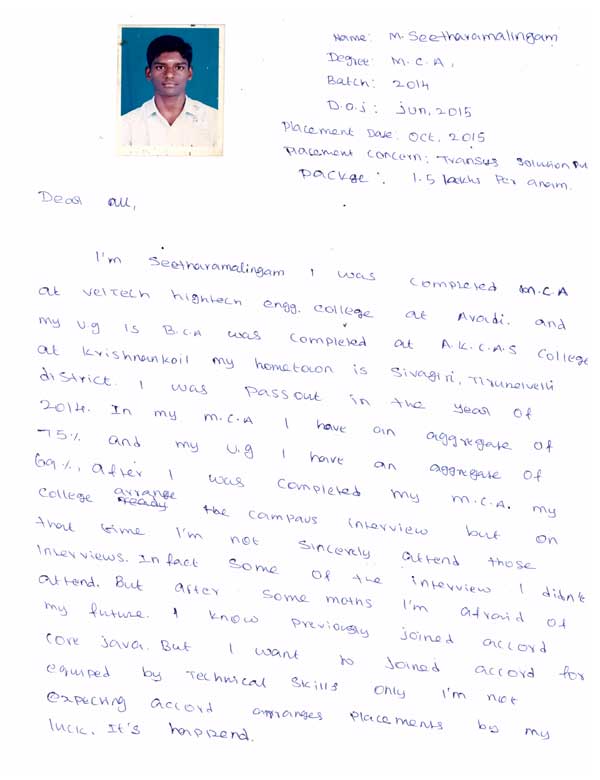 Name: M. Seetharamalingam
Degree: M.C.A,
Batch: 2014
D.O.J: Jun, 2015
Placement Date: Oct, 2015
Placement Concern: Transys Solution
Packge: 1.5 lakhs Per anam.
Dear all,
I'm Seetharamalingam I was completed M.C.A
at veltech hightech engg. college at Avadi. and
my U.g is B.C.A was completed at A.K.C.A.S College
at Krishnankoil my hometown is Sivagiri, Tirunelvelli
district. I was passout in the year of
2014. In my M.C.A I have an aggregate of
75% and my U.g I have an aggregate of
69%, After I was completed my M.C.A. my
college arrange the campaus interview but on
that time I'm not sincerely attend those
Interviews. Infact some of the interview I didn't
attend. But after some moths I'm afraid of
my future. I know previously joined accord
core java. But I want to joined accord for
equiped by Technical Skills only I'm not
expecting accord arranges placements by my
luck. It's happend.